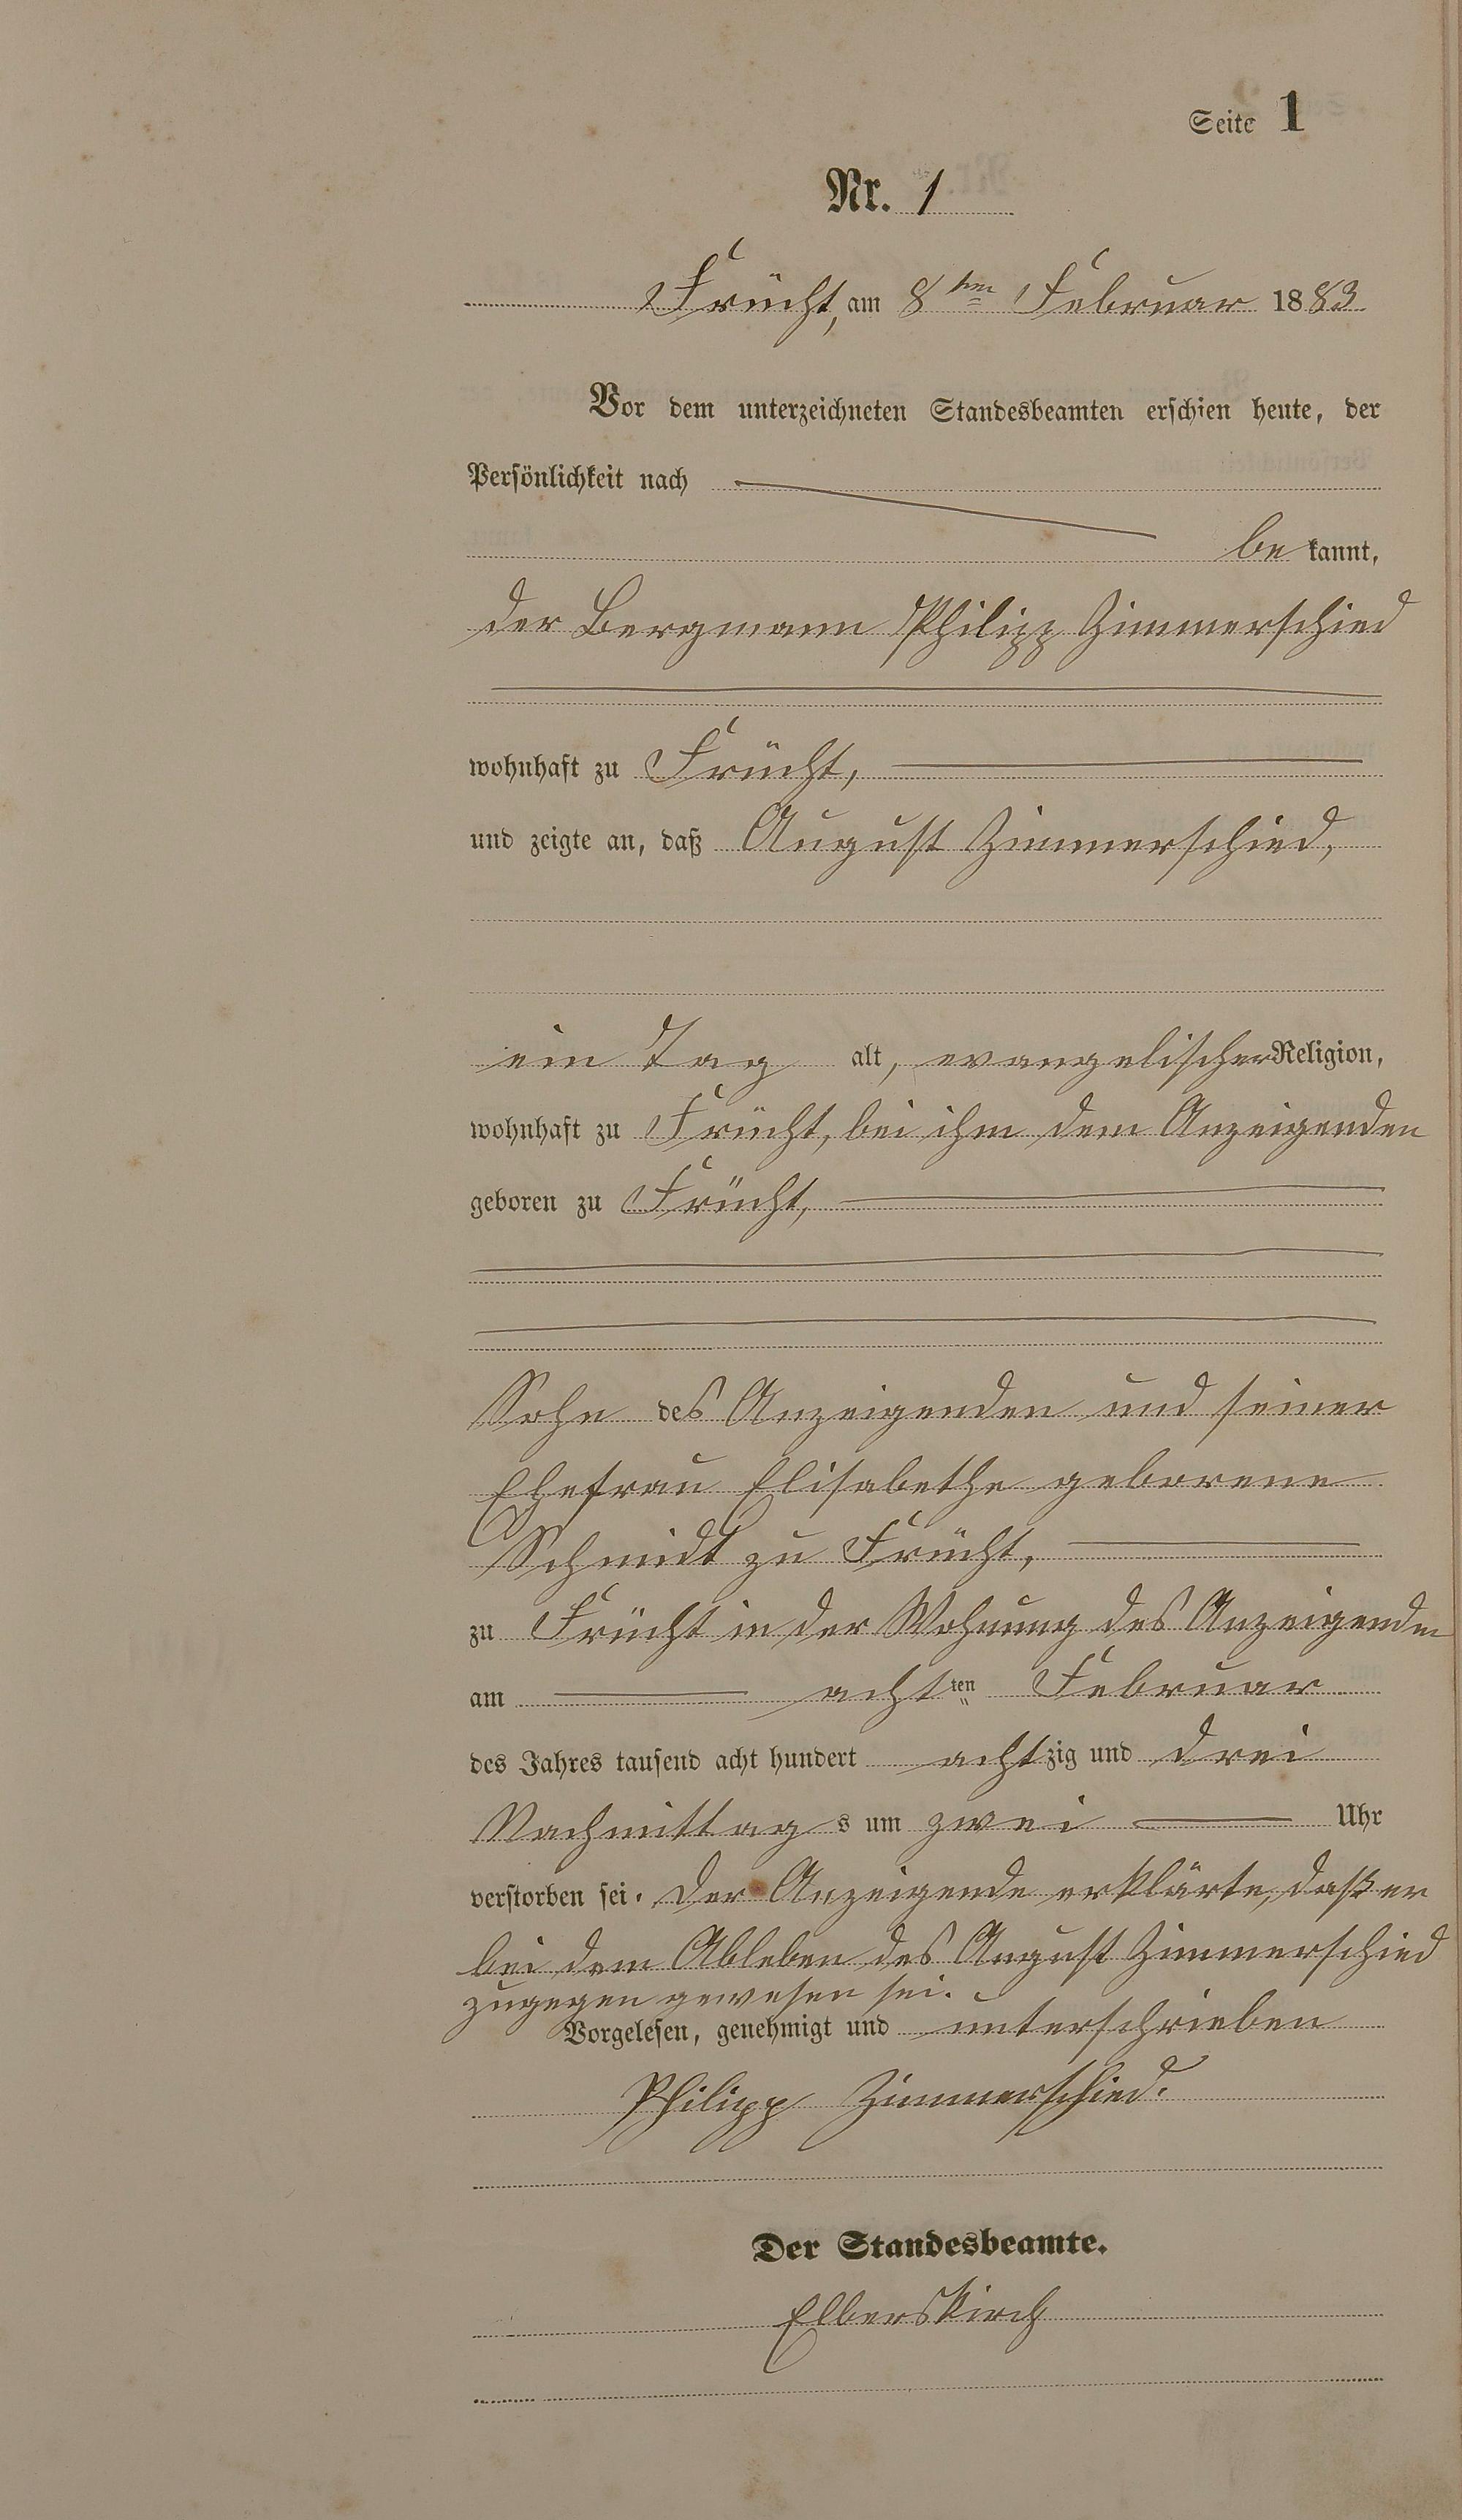 Seite 1
Nr. 1
Frücht, am 8ten Februar 1883
Vor dem unterzeichneten Standesbeamten erschien heute, der
Persönlichkeit nach
be kannt,
der Bergmann Philipp Zimmerschied
wohnhaft zu Frücht,
und zeigte an, daß August Zimmerschied,
ein Tag alt, evangelischer Religion,
wohnhaft zu Frücht, bei ihm dem Anzeigenden
geboren zu Frücht,
Sohn des Anzeigenden und seiner
Ehefrau Elisabethe geborene
Schmidt zu Frücht,
zu Frücht in der Wohnung des Anzeigenden
am achtten Februar
des Jahres tausend acht hundert achtzig und drei
Nachmittags um zwei Uhr
verstorben sei. Der Anzeigende erklärte, daß er
bei dem Ableben des August Zimmerschied
zugegen gewesen sei.
Vorgelesen, genehmigt und unterschrieben
Philipp Zimmerschied.
Der Standesbeamte.
Elberskirch